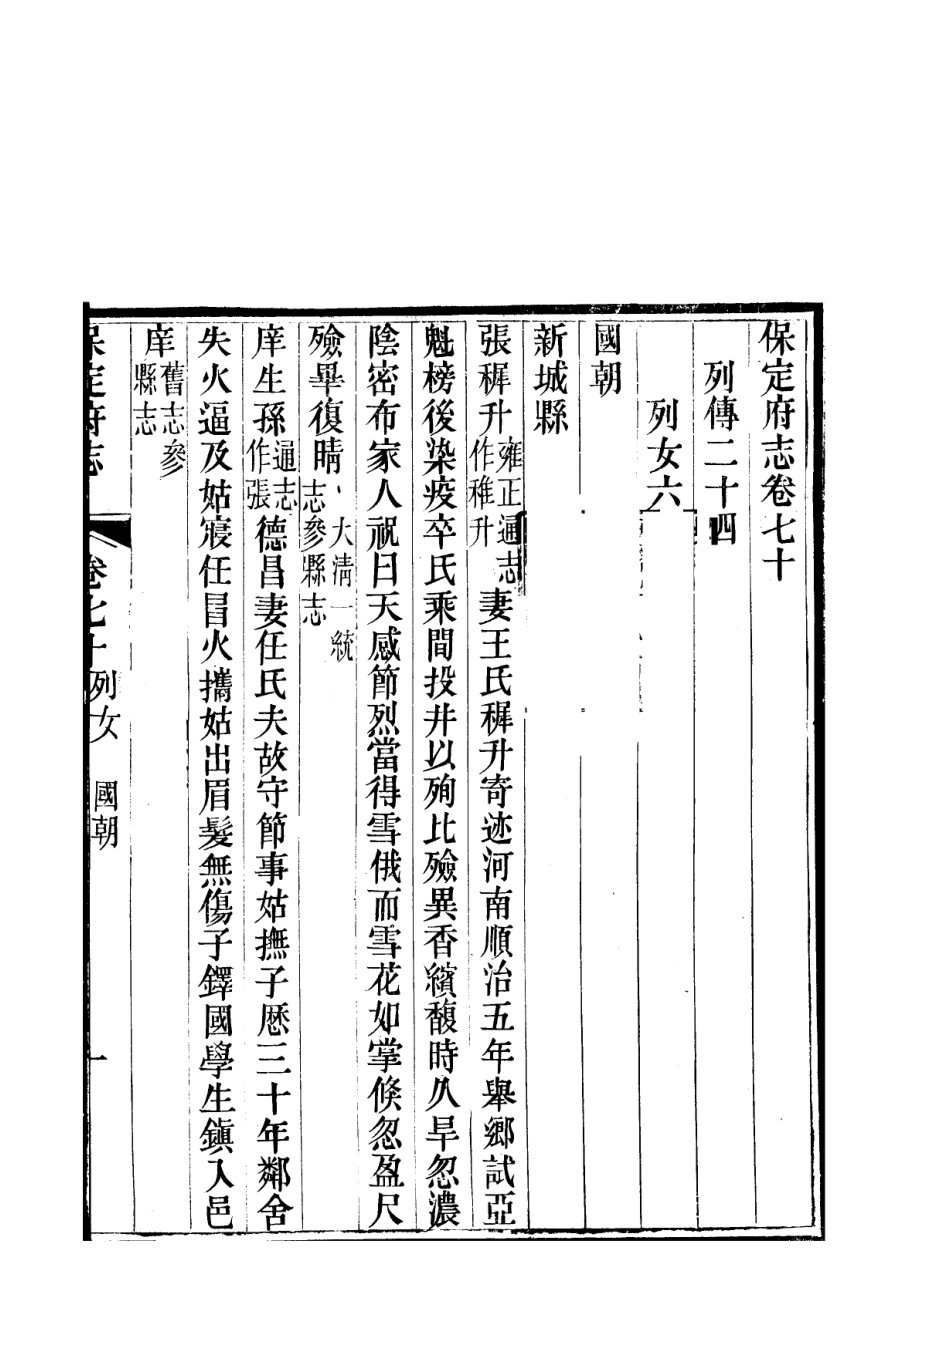 保定府志卷七十
列傳二十四
列女六
國朝
新城縣
張穉升雍正通志作稚升妻王氏穉升寄迹河南順治五年舉鄉試亞
魁榜後染疫卒氏乘間投井以殉比殮異香繽馥時久旱忽濃
陰密布家人祝曰天感節烈當得雪俄而雪花如掌倏忽盈尺
殮畢復晴大清一統志參縣志
庠生孫通志作張德昌妻任氏夫故守節事姑撫子歷三十年鄰舍
失火逼及姑寢任冒火攜姑出眉髮無傷子鐸國學生鎮入邑
庠舊志參縣志
保定府志 卷七十列女 國朝 一